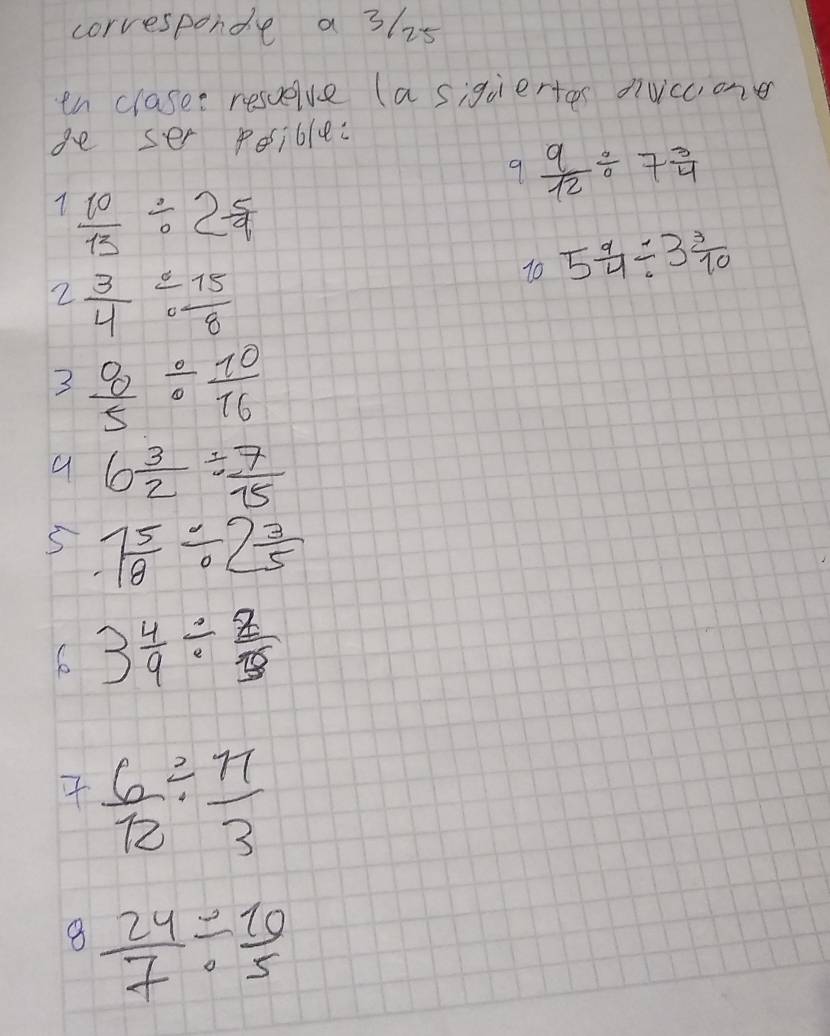 corresponde a 3/25
en clase: resuelve la siguientes
de ser posible:
1 10/13 ÷ 2 5/9
2 3/4 ÷ 15/8
3 8/5 ÷ 10/16
4 6 3/2 ÷ 7/15
5 1 5/8 ÷ 2 3/5
6 3 4/9 ÷
7 6/12 ÷ 11/3
8 24/7 ÷ 10/5
9 9/12 ÷ 7 3/4
10 5 9/4 ÷ 3 3/10